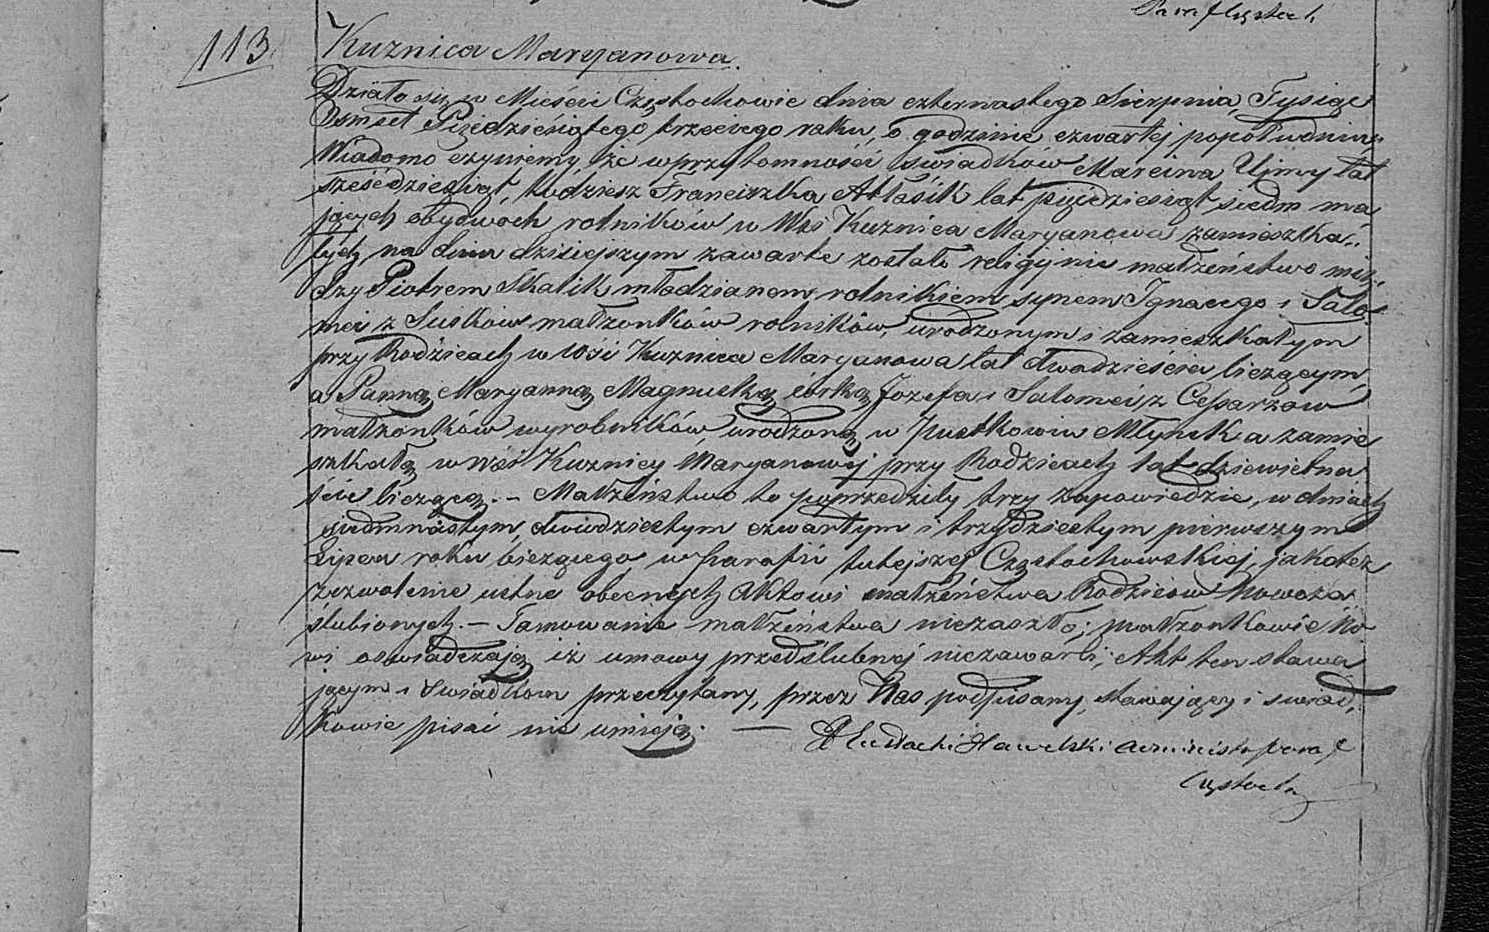 Paraf Częstoch
113
Kuznica Maryanowa.
Działo się w Mieście Częstochowie dnia czternastego Sierpnia, Tysiąc
Osmset Pięćdziesiątego trzeciego roku, o godzinie czwartej popołudniu,
Wiadomo czyniemy, że w przytomności świadków Marcina Ujmy lat
sześćdziesiąt, tudziesz Franciszka Atłasik lat pięćdziesiąt siedm ma
jących obydwoch rolników w Wsi Kuznica Maryanowa zamieszka-
łych, na dniu dzisiejszym zawarte zostało religijne małżeństwo mię-
dzy Piotrem Skalik młodzianem, rolnikiem synem Ignacego i Salo-
mei z Susków małżonków rolników, urodzonym i zamieszkałym
przy Rodzicach w wsi Kuznica Maryanowa lat dwadzieścia liczącym,
a Panną Maryanną Magnuską córką Jozefa i Salomei z Cesarzow
małżonków wyrobników, urodzoną w Pustkowiu Młynek a zamie
szkałą w wsi Kuznicy Maryanowej przy Rodzicach lat dziewietna
ście liczącą. - Małżeństwo to poprzedziły trzy zapowiedzie, w dniach
siedmnastym, dwudziestym czwartym i trzydziestym pierwszym
Lipca roku bieżącego w Parafii tutejszej Częstochowskiej, jakotez
zezwolenie ustne obecnych Aktowi małżeństwa Rodziców Nowoza
ślubionych. - Tamowanie małżeństwa niezaszło; małzonkowie No
wi oswiadczają iż umowy przedślubnej niezawarli; Akt ten stawa
jącym i Świadkom przeczytany, przez Nas podpisany, stawający i swiad-
kowie pisać nie umieją. —
Hawelski Administr paraf
Częstoch